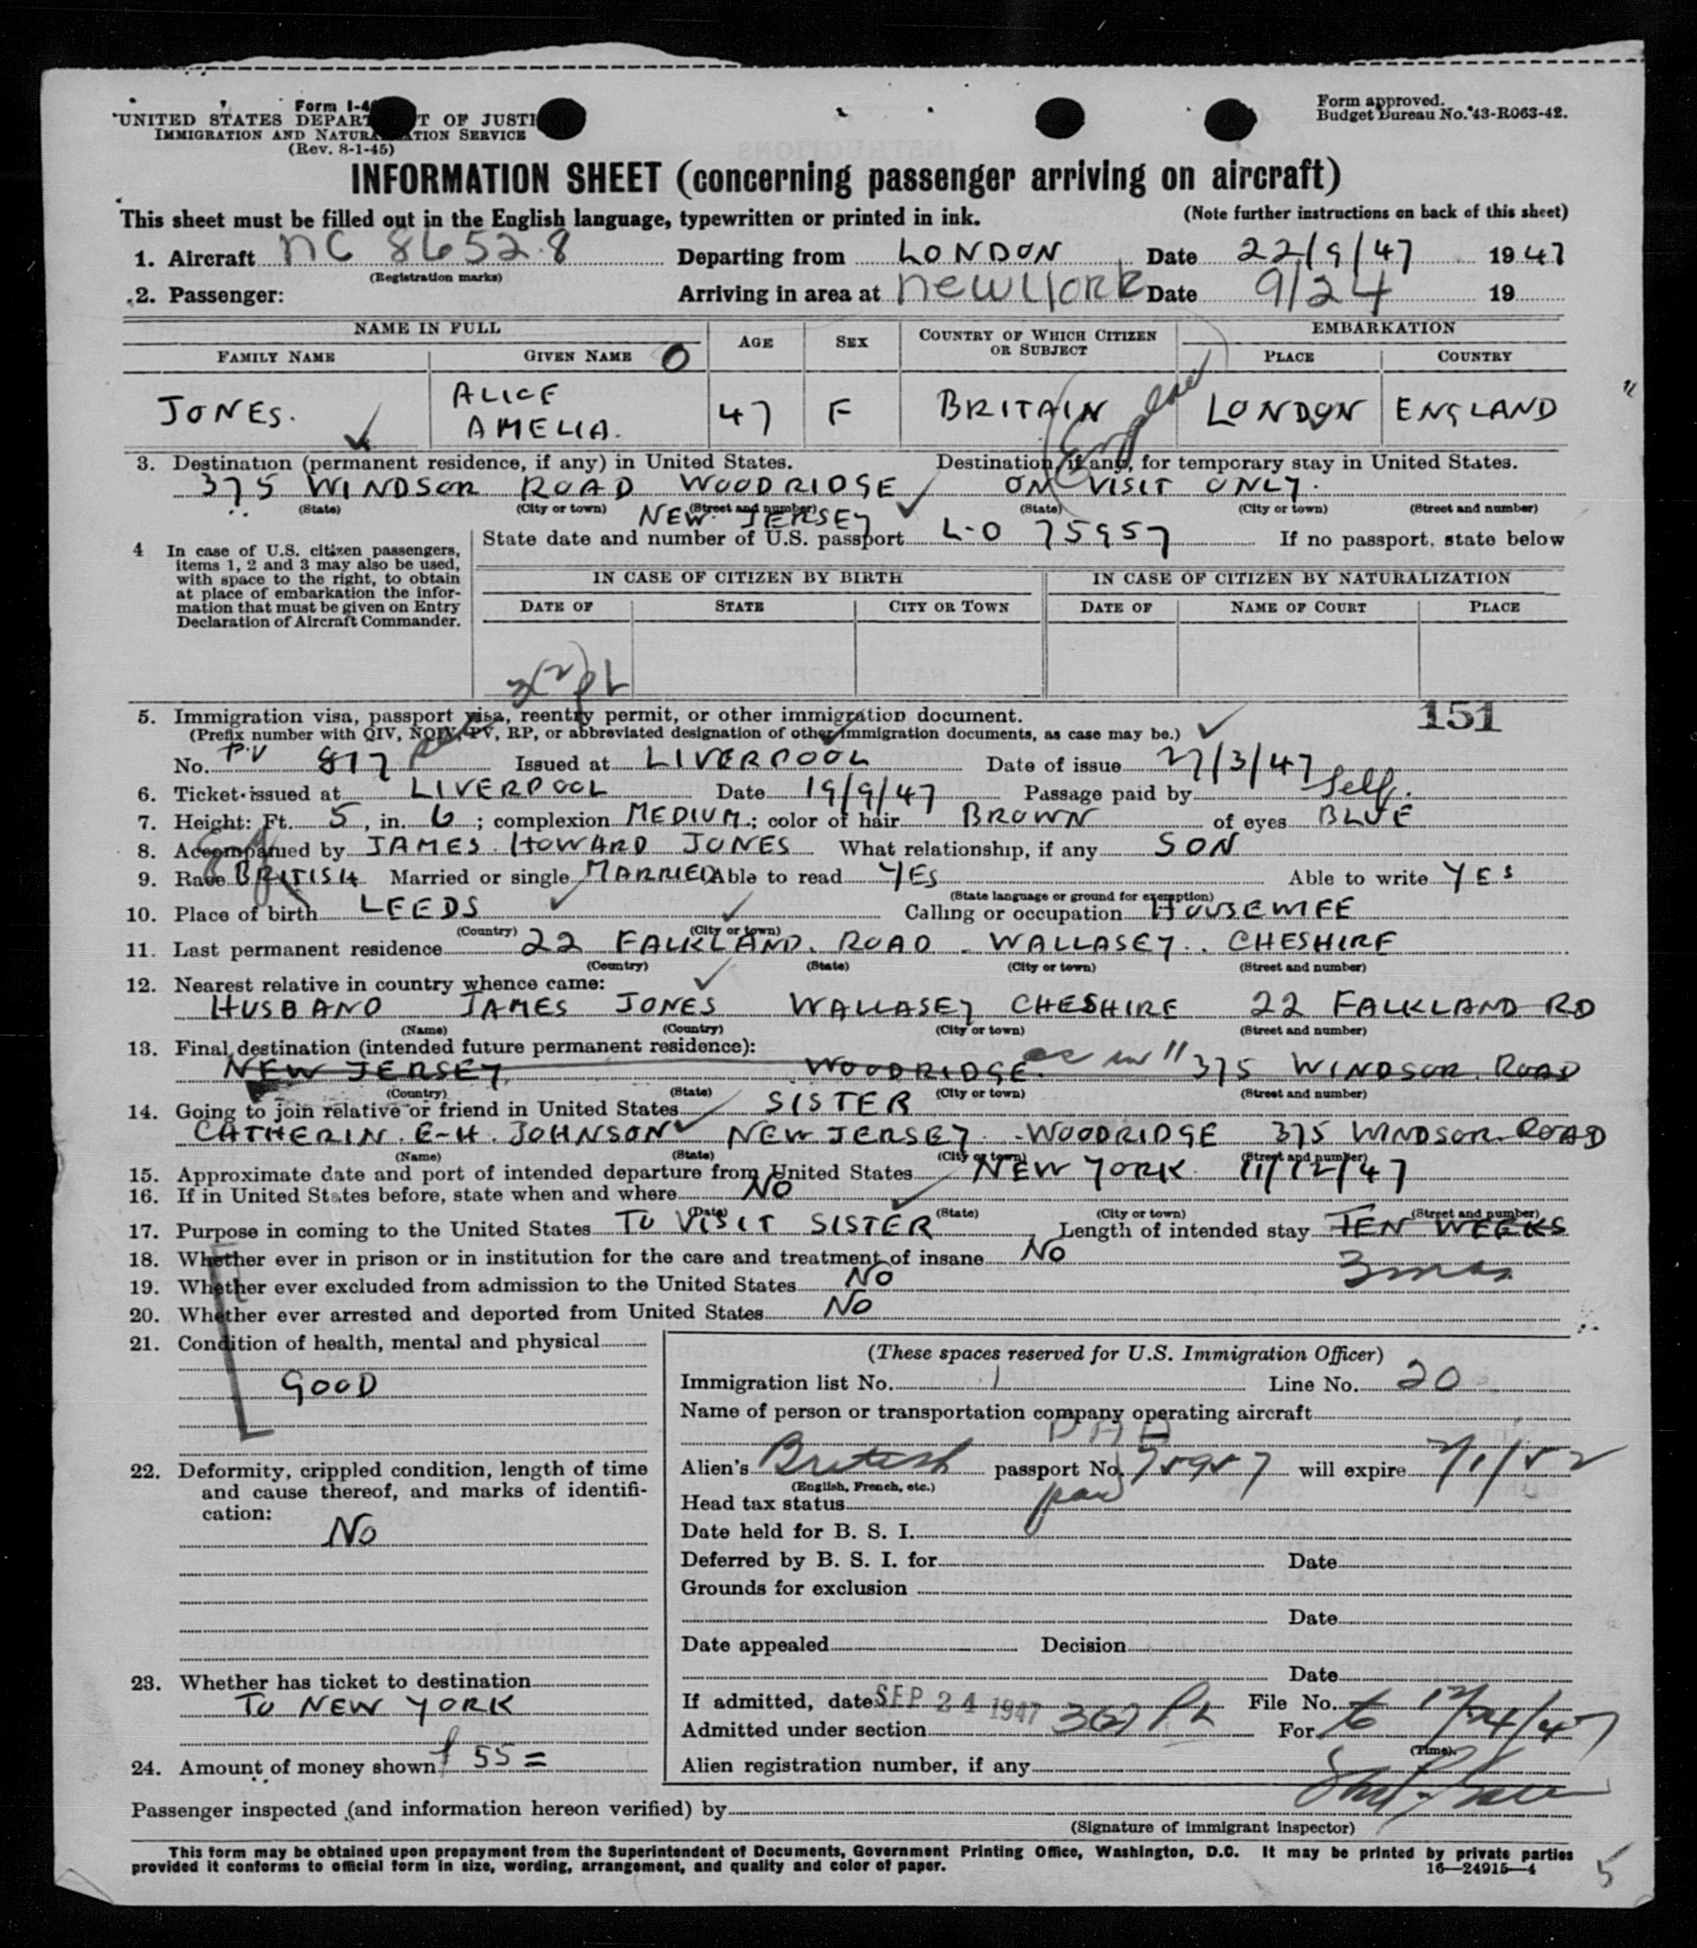 Form I-4
UNITED STATES DEPART T OF JUSTI
IMMIGRATION AND NATURA TION SERVICE
(Rev. 8-1-45)
Form approved.
Budget Bureau No. 43-R063-42.
INFORMATION SHEET (concerning passenger arriving on aircraft)
This sheet must be filled out in the English language, typewritten or printed in ink. (Note further instructions on back of this sheet)
1. Aircraft NC 86528 Departing from LONDON Date 22/9/47 1947
(Registration marks)
2. Passenger: Arriving in area at New York Date 9/24 19
NAME IN FULL AGE SEX COUNTRY OF WHICH CITIZEN OR SUBJECT EMBARKATION
FAMILY NAME GIVEN NAME O PLACE COUNTRY
JONES. ALICE AMELIA. 47 F BRITAIN (England LONDON ENGLAND "
3. Destination (permanent residence, if any) in United States. Destination, if any, for temporary stay in United States.
375 WINDSOR ROAD WOODRIDGE ON VISIT ONLY.
(State) (City or town) (Street and number) (State) (City or town) (Street and number)
NEW JERSEY
4 In case of U.S. citizen passengers, items 1, 2 and 3 may also be used, with space to the right, to obtain at place of embarkation the information that must be given on Entry Declaration of Aircraft Commander.
State date and number of U.S. passport L-O 75957 If no passport, state below
IN CASE OF CITIZEN BY BIRTH IN CASE OF CITIZEN BY NATURALIZATION
DATE OF STATE CITY OR TOWN DATE OF NAME OF COURT PLACE
3(2) PL
5. Immigration visa, passport visa, reentry permit, or other immigration document. 151
(Prefix number with QIV, NQIV, PV, RP, or abbreviated designation of other immigration documents, as case may be.)
No. P.V 817 Issued at LIVERPOOL Date of issue 27/3/47
6. Ticket issued at LIVERPOOL Date 19/9/47 Passage paid by Self.
7. Height: Ft. 5, in. 6; complexion MEDIUM; color of hair BROWN of eyes BLUE
8. Accompanied by JAMES HOWARD JONES What relationship, if any SON
9. Race BRITISH Married or single MARRIED Able to read YES Able to write YES
(State language or ground for exemption)
10. Place of birth LEEDS Calling or occupation HOUSEWIFE
(Country) (City or town)
11. Last permanent residence 22 FALKLAND ROAD - WALLASEY. CHESHIRE
(Country) (State) (City or town) (Street and number)
12. Nearest relative in country whence came:
HUSBAND JAMES JONES WALLASEY CHESHIRE 22 FALKLAND RD
(Name) (Country) (City or town) (Street and number)
13. Final destination (intended future permanent residence):
NEW JERSEY WOODRIDGE as in 11 375 WINDSOR ROAD
(Country) (State) (City or town) (Street and number)
14. Going to join relative or friend in United States SISTER
CATHERIN. E-H. JOHNSON NEW JERSEY - WOODRIDGE 375 WINDSOR ROAD
(Name) (State) (City or town) (Street and number)
15. Approximate date and port of intended departure from United States NEW YORK 11/12/47
16. If in United States before, state when and where NO
(Date) (State) (City or town) (Street and number)
17. Purpose in coming to the United States TO VISIT SISTER Length of intended stay TEN WEEKS
3 mos
18. Whether ever in prison or in institution for the care and treatment of insane NO
19. Whether ever excluded from admission to the United States NO
20. Whether ever arrested and deported from United States NO
21. Condition of health, mental and physical
GOOD
22. Deformity, crippled condition, length of time and cause thereof, and marks of identification:
NO
23. Whether has ticket to destination
TO NEW YORK
24. Amount of money shown £55=
(These spaces reserved for U.S. Immigration Officer)
Immigration list No. 1 Line No. 20
Name of person or transportation company operating aircraft
PAA
Alien's British passport No. 75957 will expire 7/1/52
(English, French, etc.)
Head tax status
Date held for B. S. I.
Deferred by B. S. I. for Date
Grounds for exclusion
Date
Date appealed Decision
Date
If admitted, date SEP 24 1947 File No.
Admitted under section 3(2) PL For to 12/24/47
(Time)
Alien registration number, if any
Passenger inspected (and information hereon verified) by
(Signature of immigrant inspector)
This form may be obtained upon prepayment from the Superintendent of Documents, Government Printing Office, Washington, D.C. It may be printed by private parties
provided it conforms to official form in size, wording, arrangement, and quality and color of paper. 16—24915—4
5